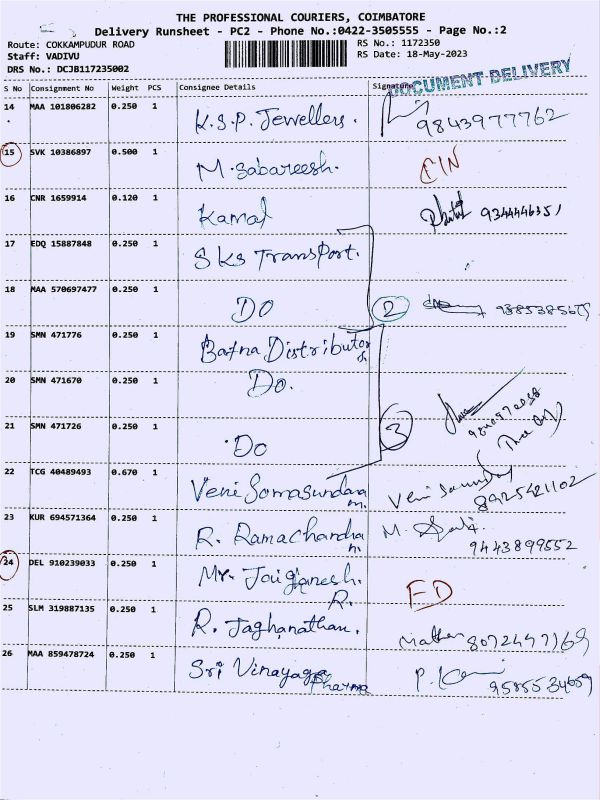 THE PROFESSIONAL COURIERS, COIMBATORE
Delivery Runsheet - PC2 - Phone No.:0422-3505555 - Page No.:2
Route: COKKAMPUDUR ROAD RS No.: 1172350
Staff: VADIVU RS Date: 18-May-2023
DRS No.: DCJB117235002
DOCUMENT DELIVERY
S No Consignment No Weight PCS Consignee Details Signature
14 MAA 101806282 0.250 1 K.S.P. Jewellers. 9843977762
15 SVK 10386897 0.500 1 M. Sabareesh.
16 CNR 1659914 0.120 1 Kamal 9344446351
17 EDQ 15887848 0.250 1 SKS Transport.
18 MAA 570697477 0.250 1 DO 2
19 SMN 471776 0.250 1 Bafna Distributors
20 SMN 471670 0.250 1 Do.
21 SMN 471726 0.250 1 Do 3
22 TCG 40489493 0.670 1 Veni Somasundaram. 8925421102
23 KUR 694571364 0.250 1 R. Ramachandran. 9443899552
24 DEL 910239033 0.250 1 Mr. Jaiganesh. R. FD
25 SLM 319887135 0.250 1 R. Jaghanathan. 8072447169
26 MAA 859478724 0.250 1 Sri Vinayaga Pharma 9585534659